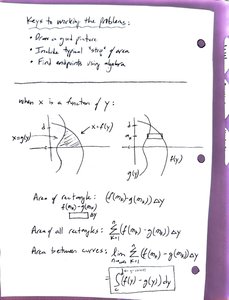 Keys to working the problems:
• Draw a good picture
• Include typical "strip" of area
• Find endpoints using algebra
When x is a function of y:
d
x=g(y)
x=f(y)
c
d
m_k
c
g(y)
f(y)
Area of rectangle: (f(m_k)-g(m_k))Δy
f(m_k)-g(m_k)
Δy
Area of all rectangles: ∑_{k=1}^{n} (f(m_k)-g(m_k))Δy
Area between curves: lim_{n→∞} ∑_{k=1}^{n} (f(m_k)-g(m_k))Δy
= ∫_c^d (f(y)-g(y))dy